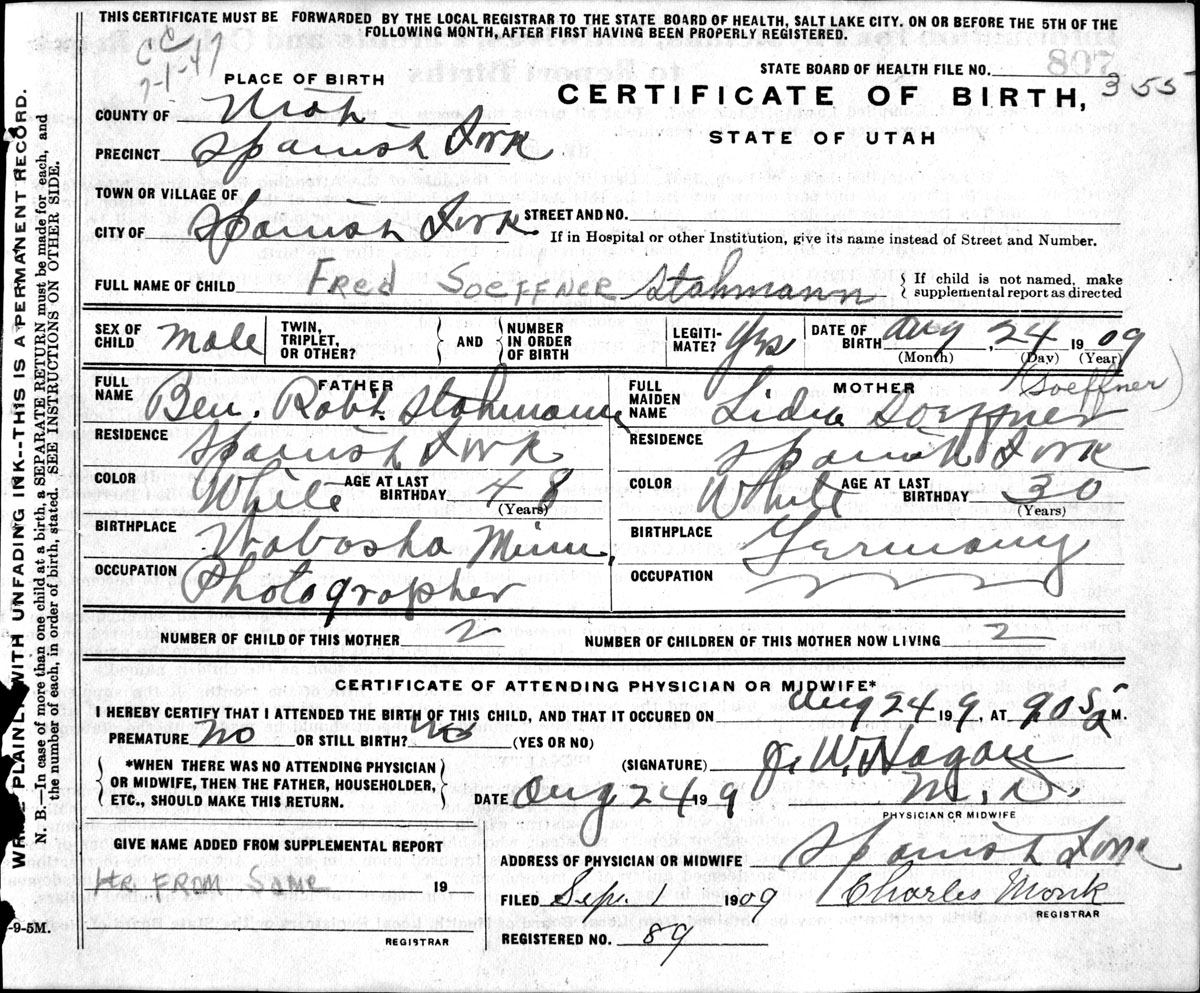 THIS CERTIFICATE MUST BE FORWARDED BY THE LOCAL REGISTRAR TO THE STATE BOARD OF HEALTH, SALT LAKE CITY. ON OR BEFORE THE 5TH OF THE
FOLLOWING MONTH, AFTER FIRST HAVING BEEN PROPERLY REGISTERED.
7-1-47
PLACE OF BIRTH
STATE BOARD OF HEALTH FILE NO. 355
708
CERTIFICATE OF BIRTH,
STATE OF UTAH
COUNTY OF Utah
PRECINCT Spanish Fork
TOWN OR VILLAGE OF
CITY OF Spanish Fork STREET AND NO.
If in Hospital or other Institution, give its name instead of Street and Number.
FULL NAME OF CHILD FRED SOEFFNER Stahmann { If child is not named, make supplemental report as directed
SEX OF CHILD male TWIN, TRIPLET, OR OTHER? { AND } NUMBER IN ORDER OF BIRTH LEGITI-MATE? Yes DATE OF BIRTH Aug, 24 1909
(Month) (Day) (Year)
FATHER
FULL NAME Ben. Robt. Stahmann
RESIDENCE Spanish Fork
COLOR White AGE AT LAST BIRTHDAY 48
(Years)
BIRTHPLACE Wabasha Minn,
OCCUPATION Photographer
MOTHER (Soeffner)
FULL MAIDEN NAME Lidia Soeffner
RESIDENCE Spanish Fork
COLOR White AGE AT LAST BIRTHDAY 30
(Years)
BIRTHPLACE Germany
OCCUPATION
NUMBER OF CHILD OF THIS MOTHER 2 NUMBER OF CHILDREN OF THIS MOTHER NOW LIVING 2
CERTIFICATE OF ATTENDING PHYSICIAN OR MIDWIFE*
I HEREBY CERTIFY THAT I ATTENDED THE BIRTH OF THIS CHILD, AND THAT IT OCCURED ON Aug 24 19 9, AT 9.05 a M.
PREMATURE No OR STILL BIRTH? No (YES OR NO)
*WHEN THERE WAS NO ATTENDING PHYSICIAN
OR MIDWIFE, THEN THE FATHER, HOUSEHOLDER,
ETC., SHOULD MAKE THIS RETURN.
(SIGNATURE) J. W. Hagan
DATE Aug 24 19 9 M.D.
PHYSICIAN OR MIDWIFE
GIVE NAME ADDED FROM SUPPLEMENTAL REPORT
FROM SAME 19
REGISTRAR
ADDRESS OF PHYSICIAN OR MIDWIFE Spanish Fork
FILED Sep. 1 1909 Charles Monk
REGISTRAR
REGISTERED NO. 89
-9-5M.
WRITE PLAINLY WITH UNFADING INK--THIS IS A PERMANENT RECORD.
N. B.—In case of more than one child at a birth, a SEPARATE RETURN must be made for each, and
the number of each, in order of birth, stated. SEE INSTRUCTIONS ON OTHER SIDE.